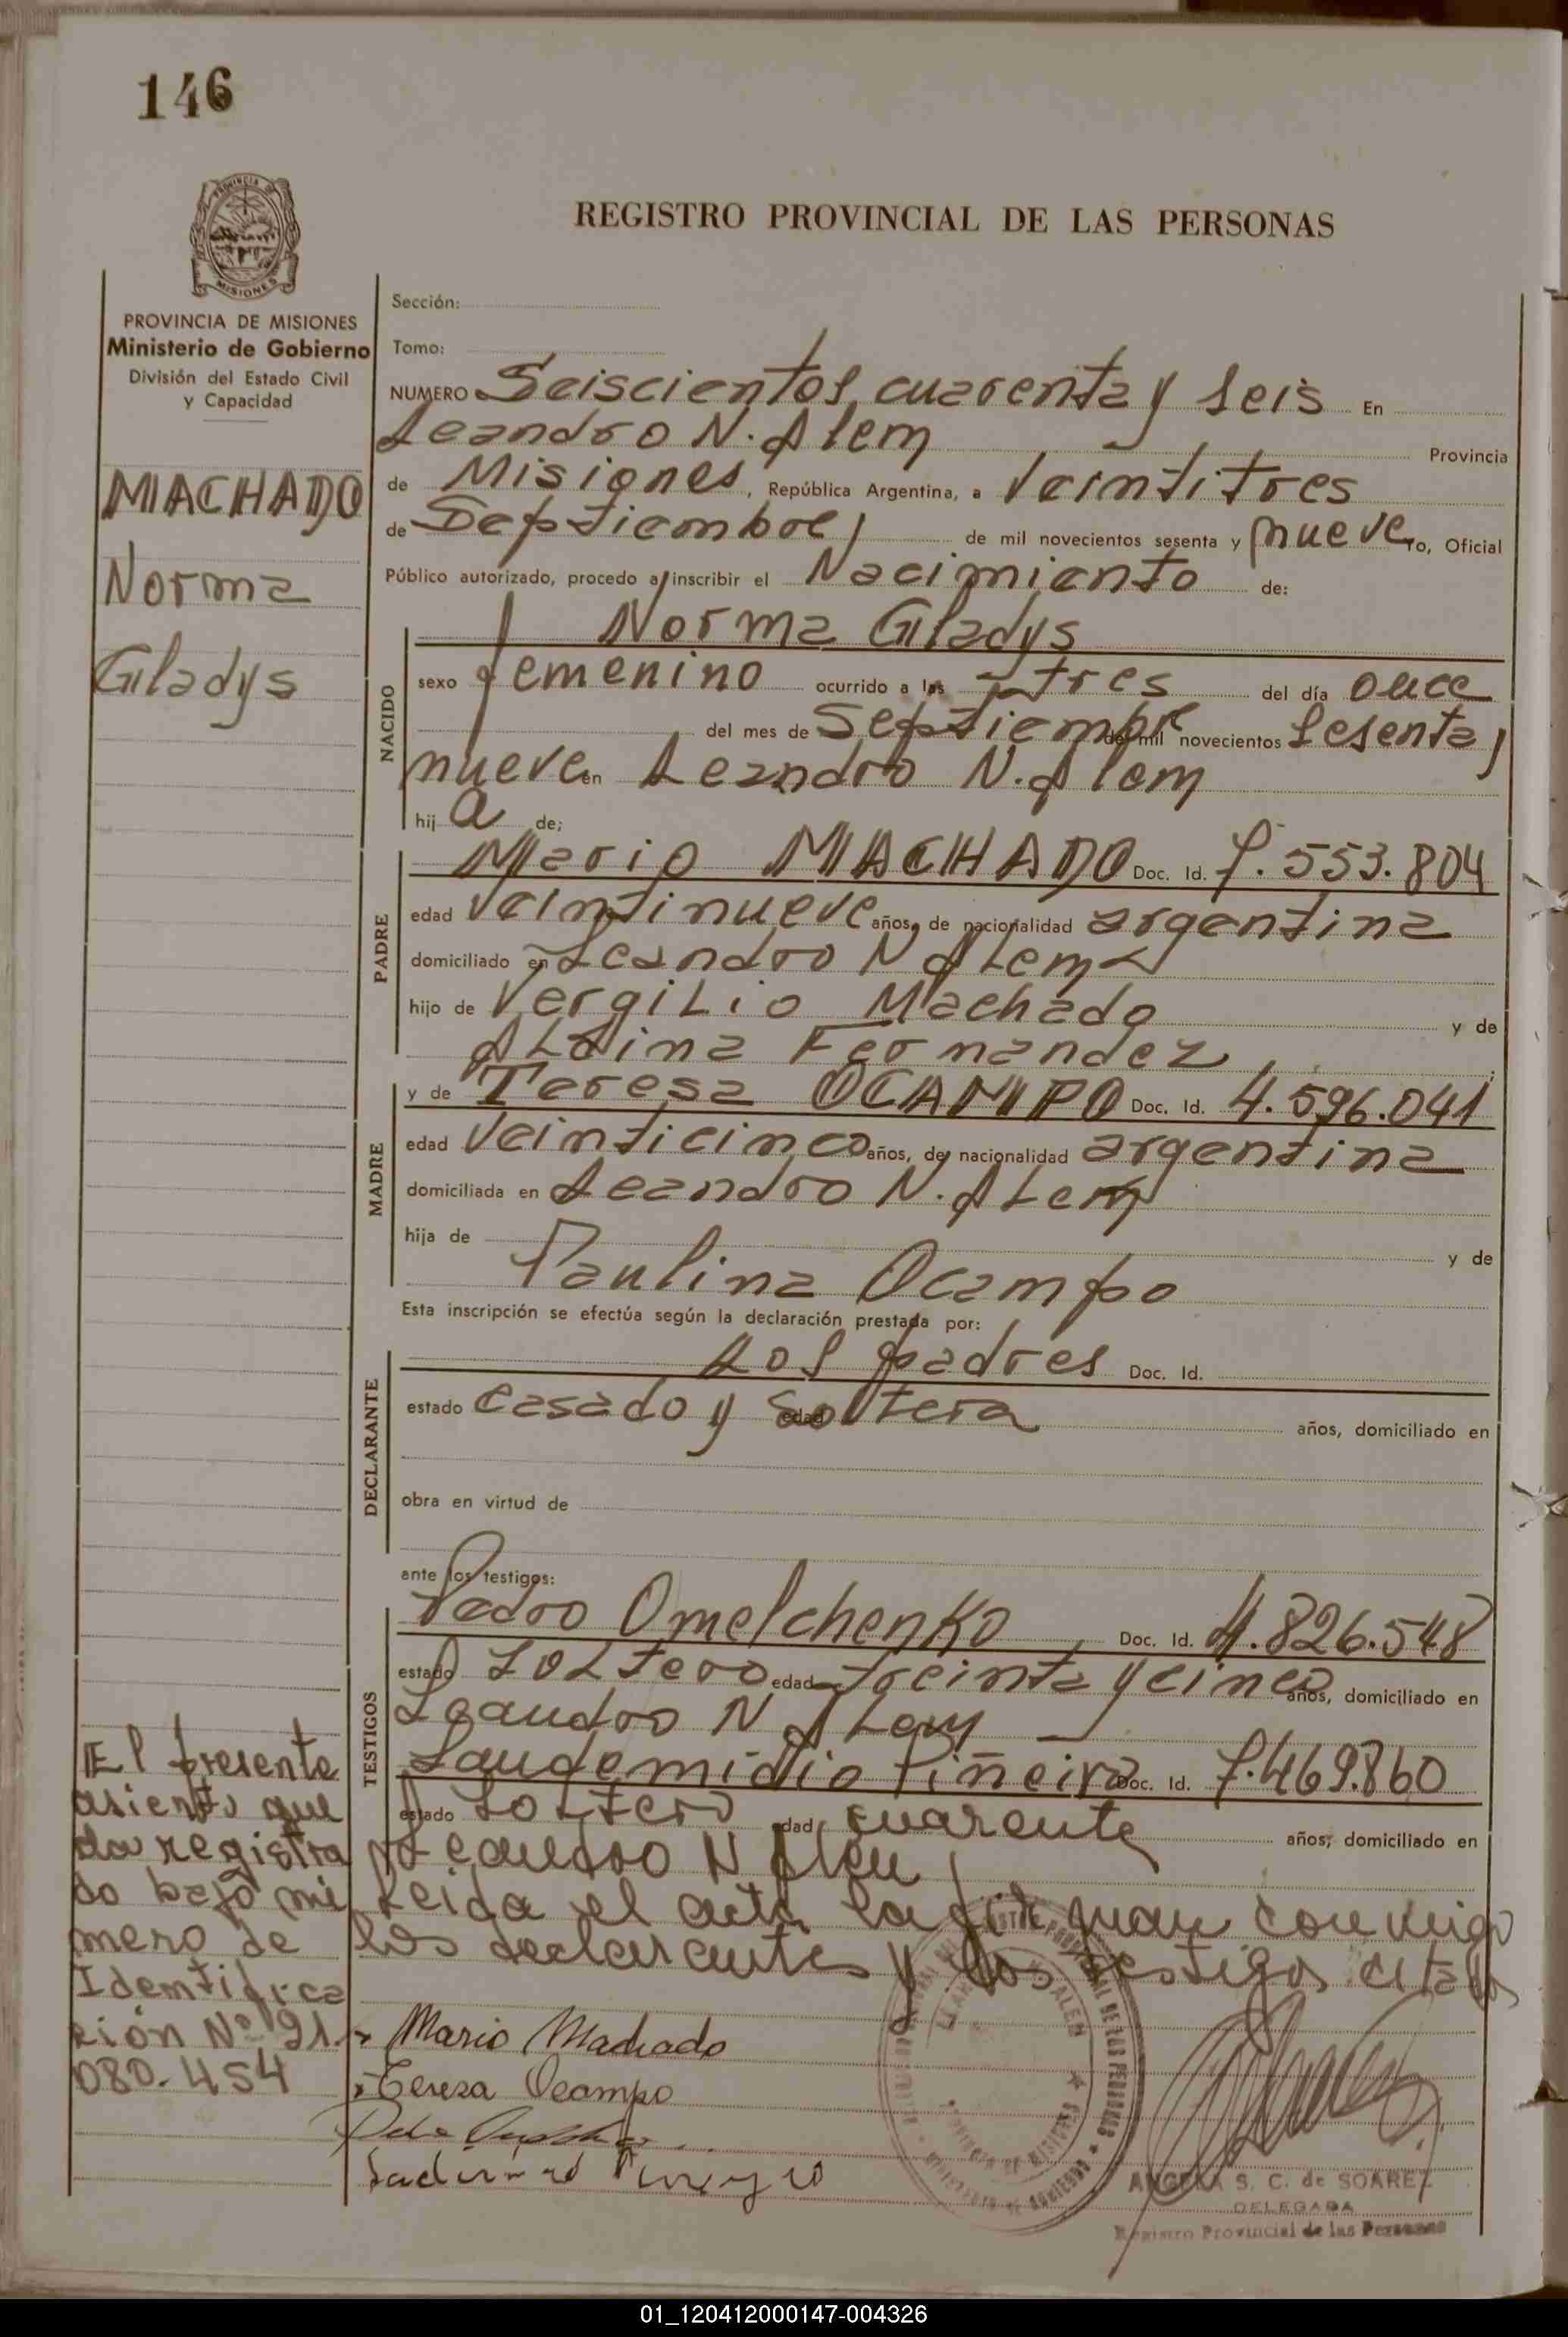 146
PROVINCIA DE
MISIONES
REGISTRO PROVINCIAL DE LAS PERSONAS
PROVINCIA DE MISIONES
Ministerio de Gobierno
División del Estado Civil
y Capacidad
MACHADO
Norma
Gladys
Sección:
Tomo:
NUMERO Seiscientos cuarenta y seis En
Leandro N. Alem Provincia
de Misiones, República Argentina, a Veintitres
de Septiembre de mil novecientos sesenta y nueve, Yo, Oficial
Público autorizado, procedo a inscribir el Nacimiento de:
NACIDO
Norma Gladys
sexo femenino ocurrido a las tres del día once
del mes de Septiembre de mil novecientos sesenta y
nueve en Leandro N. Alem
hij a de:
PADRE
Mario MACHADO Doc. Id. 7.553.804
edad Veintinueve años, de nacionalidad argentina
domiciliado en Leandro N Alem
hijo de Vergilio Machado y de
Fernandez
MADRE
y de Teresa OCAMPO Doc. Id. 4.596.041
edad Veinticinco años, de nacionalidad argentina
domiciliada en Leandro N. Alem
hija de y de
Paulina Ocampo
Esta inscripción se efectúa según la declaración prestada por:
DECLARANTE
Los padres Doc. Id.
estado casado y Soltera edad años, domiciliado en
obra en virtud de
ante los testigos:
TESTIGOS
Pedro Omelchenko Doc. Id. 4.826.548
estado Soltero edad treinta y cinco años, domiciliado en
Leandro N Alem
Laudemidio Piñeiro Doc. Id. 7.469.860
estado Soltero edad cuarenta años, domiciliado en
Leandro N Alem
Leida el acta la firman conmigo
los declarantes y los testigos citados
El presente
asiento que
da registra
do bajo nú
mero de
Identifica
ción Nº 21.
080.454
Mario Machado
Teresa Ocampo
ANGELA S. C. de SOAREZ
DELEGADA
Registro Provincial de las Personas
01_120412000147-004326